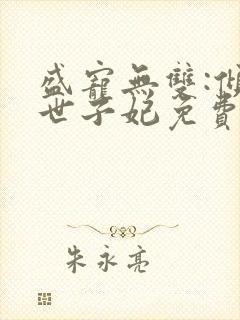 盛寵無雙:傾
世子妃免費
朱永亮